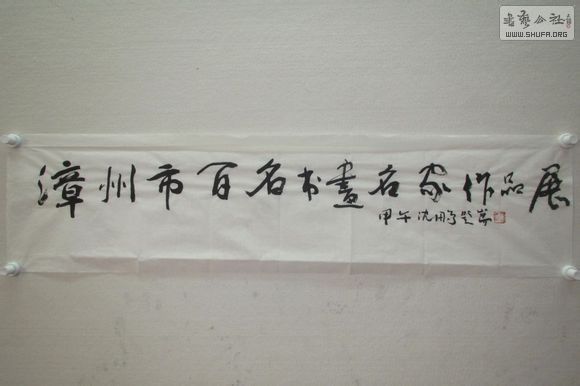 书艺公社
WWW.SHUFA.ORG
漳州市百名书畫名家作品展
甲午沈鹏题